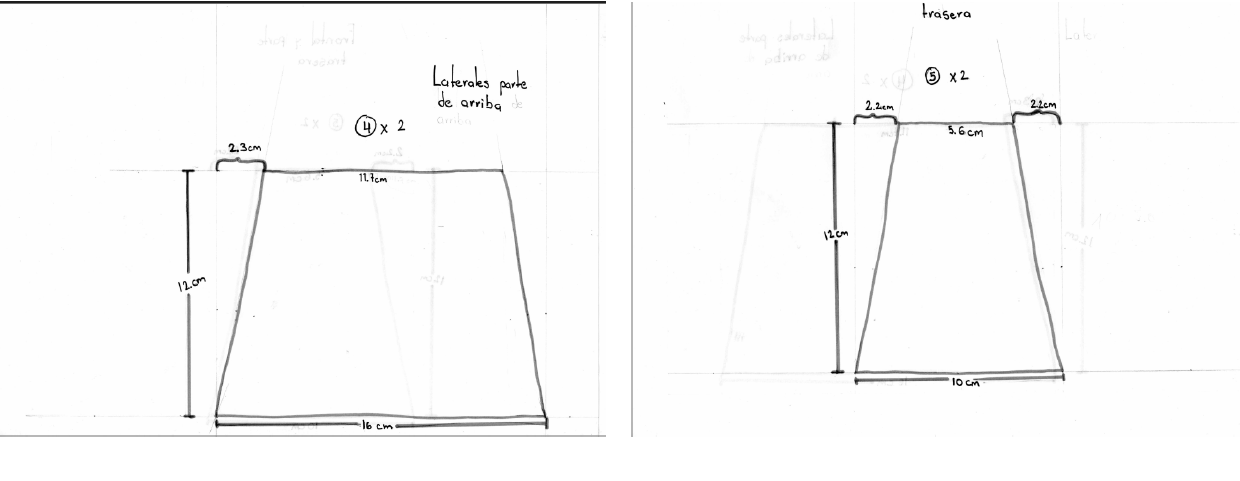 Laterales parte
de arriba
④ x 2
2.3cm
11.7cm
12cm
16 cm
trasera
⑤ x2
2.2cm
2.2cm
5.6cm
12cm
10 cm